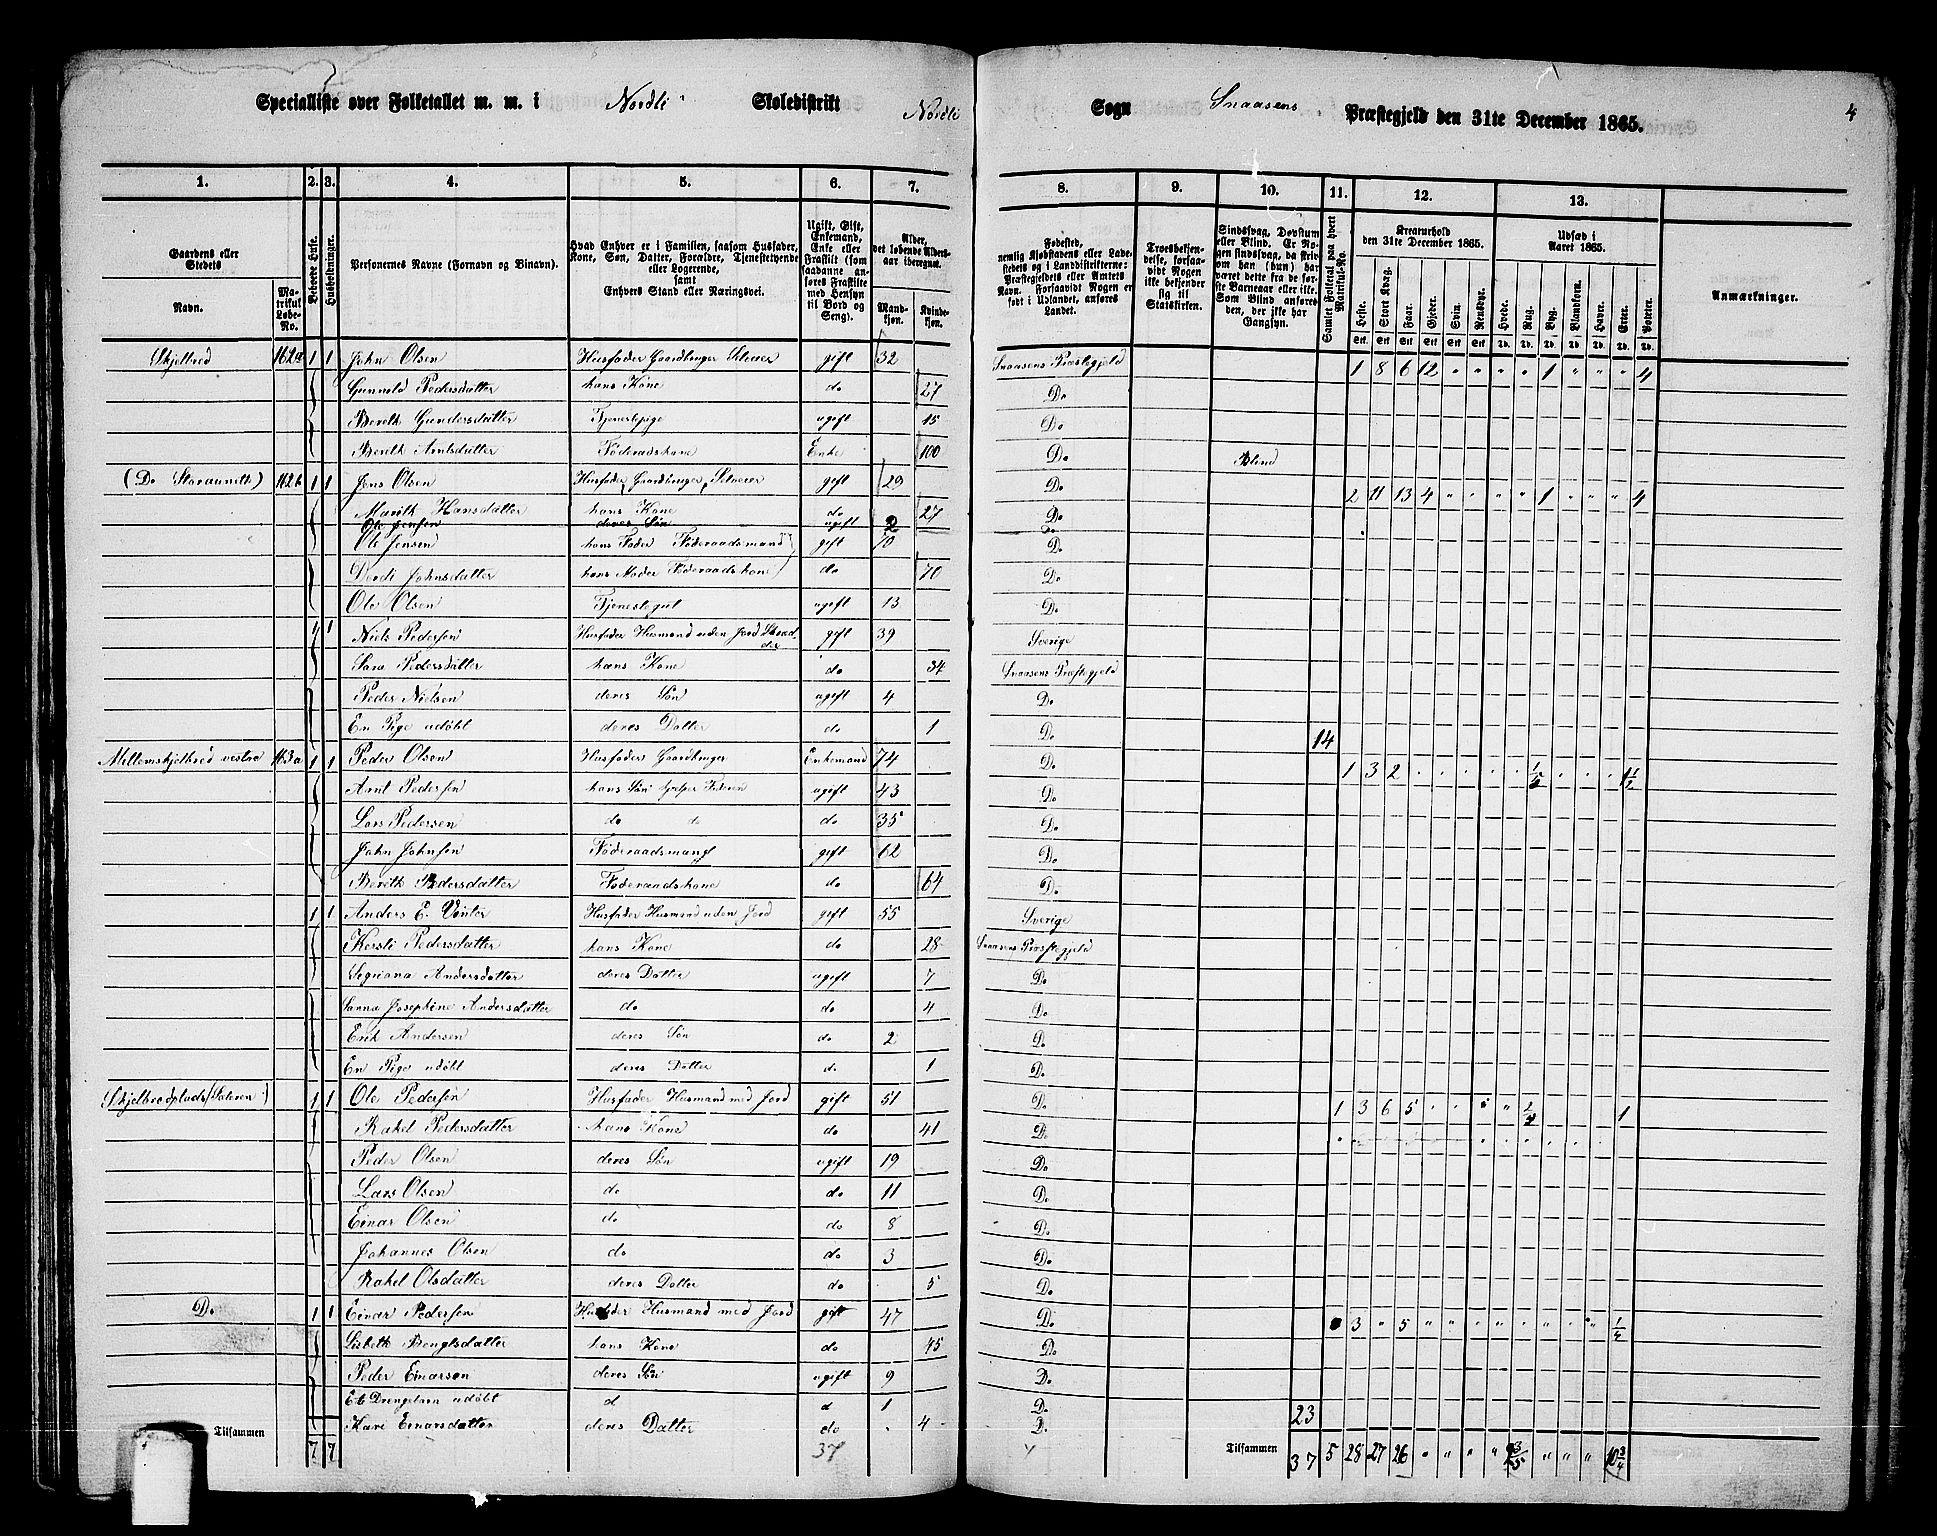 Specialliste over Folketallet m. m. i Nordli Skoledistrikt Nordli Sogn Snaasens Præstegjeld den 31te December 1865. 4
1. 2. 3. 4. 5. 6. 7. 8. 9. 10. 11. 12. 13.
Gaardens eller Stedets Navn. Matrikul Løbe-No. Beboede Huse. Husholdninger. Personernes Navne (Fornavn og Binavn). Hvad Enhver er i Familien, saasom Husfader, Kone, Søn, Datter, Forældre, Tjenestetyende eller Logerende, samt Enhvers Stand eller Næringsvei. Ugift, Gift, Enkemand, Enke eller Fraskilt (som saadanne anføres Fraskilte med Hensyn til Bord og Seng). Alder, det løbende Alders-aar iberegnet. Mandkjøn. Kvindekjøn. Fødested, nemlig Kjøbstadens eller Ladestedets og i Landdistrikterne: Præstegjeldets eller Amtets Navn. Forsaavidt Nogen er født i Udlandet, anføres Landet. Troesbekjendelse, forsaavidt Nogen ikke bekjender sig til Statskirken. Sindssvag, Døvstum eller Blind. Er Nogen sindssvag, da skrives om han (hun) har været dette fra de første Barneaar eller ikke. Som Blind anføres den, der ikke har Gangsyn. Samlet Folketal paa hvert Matrikul-No. Kreaturhold den 31te December 1865. Heste. Stort Kvæg. Faar. Gjeder. Svin. Rensdyr. Udsæd i Aaret 1865. Hvede. Rug. Byg. Blandkorn. Havre. Erter. Poteter. Anmærkninger.
Skjelbred 162a 1 1 John Olsen Husfader Gaardbruger Seleier gift 32 Snaasens Præstegjeld 1 8 6 12 " " " " 1 " " " 4
Gunnild Pedersdatter hans Kone do 27 Do
Bereth Gundersdatter Tjenestepige ugift 15 Do
Bereth Arntsdatter Føderaadskone Enke 100 Do Blind
(Do Storauneth) 162b 1 1 Jens Olsen Husfader, Gaardbruger, Seleier gift 29 Do 2 11 13 4 " " " " 1 " " " 4
Mareth Hansdatter hans Kone do 27 Do
Ole Jensen deres Søn ugift 2 Do
Ole Jensen hans Fader Føderaadsmand gift 70 Do
Dordi Johnsdatter hans Moder Føderaadskone do 70 Do
Ole Olsen Tjenestegut ugift 13 Do
1 1 Niels Pedersen Husfader Husmand uden Jord Skræddder gift 39 Sverige
Sara Pedersdatter hans Kone do 34 Snaasens Præstegjeld
Peder Nielsen deres Søn ugift 4 Do
En Pige udøbt deres Datter do 1 Do 14
Mellemskjelbred vestre 163a 1 1 Peder Olsen Husfader Gaardbruger Enkemand 74 Do 1 3 2
Arnt Pedersen hans Søn hjelper Faderen ugift 43 Do
Lars Pedersen do do do 35 Do
John Johnsen Føderaadsmand gift 62 Do
Bereth Pedersdatter Føderaadskone do 64 Do
1 1 Anders E. Vinter Husfader Husmand uden Jord gift 55 Sverige
Kersti Pedersdatter hans Kone do 28 Snaasens Præstegjeld
Segriana Andersdatter deres Datter ugift 7 Do
Sanna Josephine Andersdatter do do 4 Do
Erik Andersen deres Søn do 2 Do
En Pige udøbt deres Datter do 1 Do
Skjelbredplads (Sæteren) 1 1 Ole Pedersen Husfader Husmand med Jord gift 51 Do 1 3 6 5 1
Rakel Pedersdatter hans Kone do 41 Do
Peder Olsen deres Søn ugift 19 Do
Lars Olsen do do 11 Do
Einar Olsen do do 8 Do
Johannes Olsen do do 3 Do
Rakel Olsdatter deres Datter do 5 Do
Do 1 1 Einar Pedersen Husfader Husmand med Jord gift 47 Do 3 " 5 " " " " " " " " 1/4
Lisbeth Bengtsdatter hans Kone do 45 Do
Peder Einarsen deres Søn ugift 9 Do
Et Drengebarn udøbt d d 1 Do
Kari Einarsdatter deres Datter do 4 Do 23
Tilsammen 7 7 37 Tilsammen 37 5 28 27 26 " " " " " " " 10 3/4